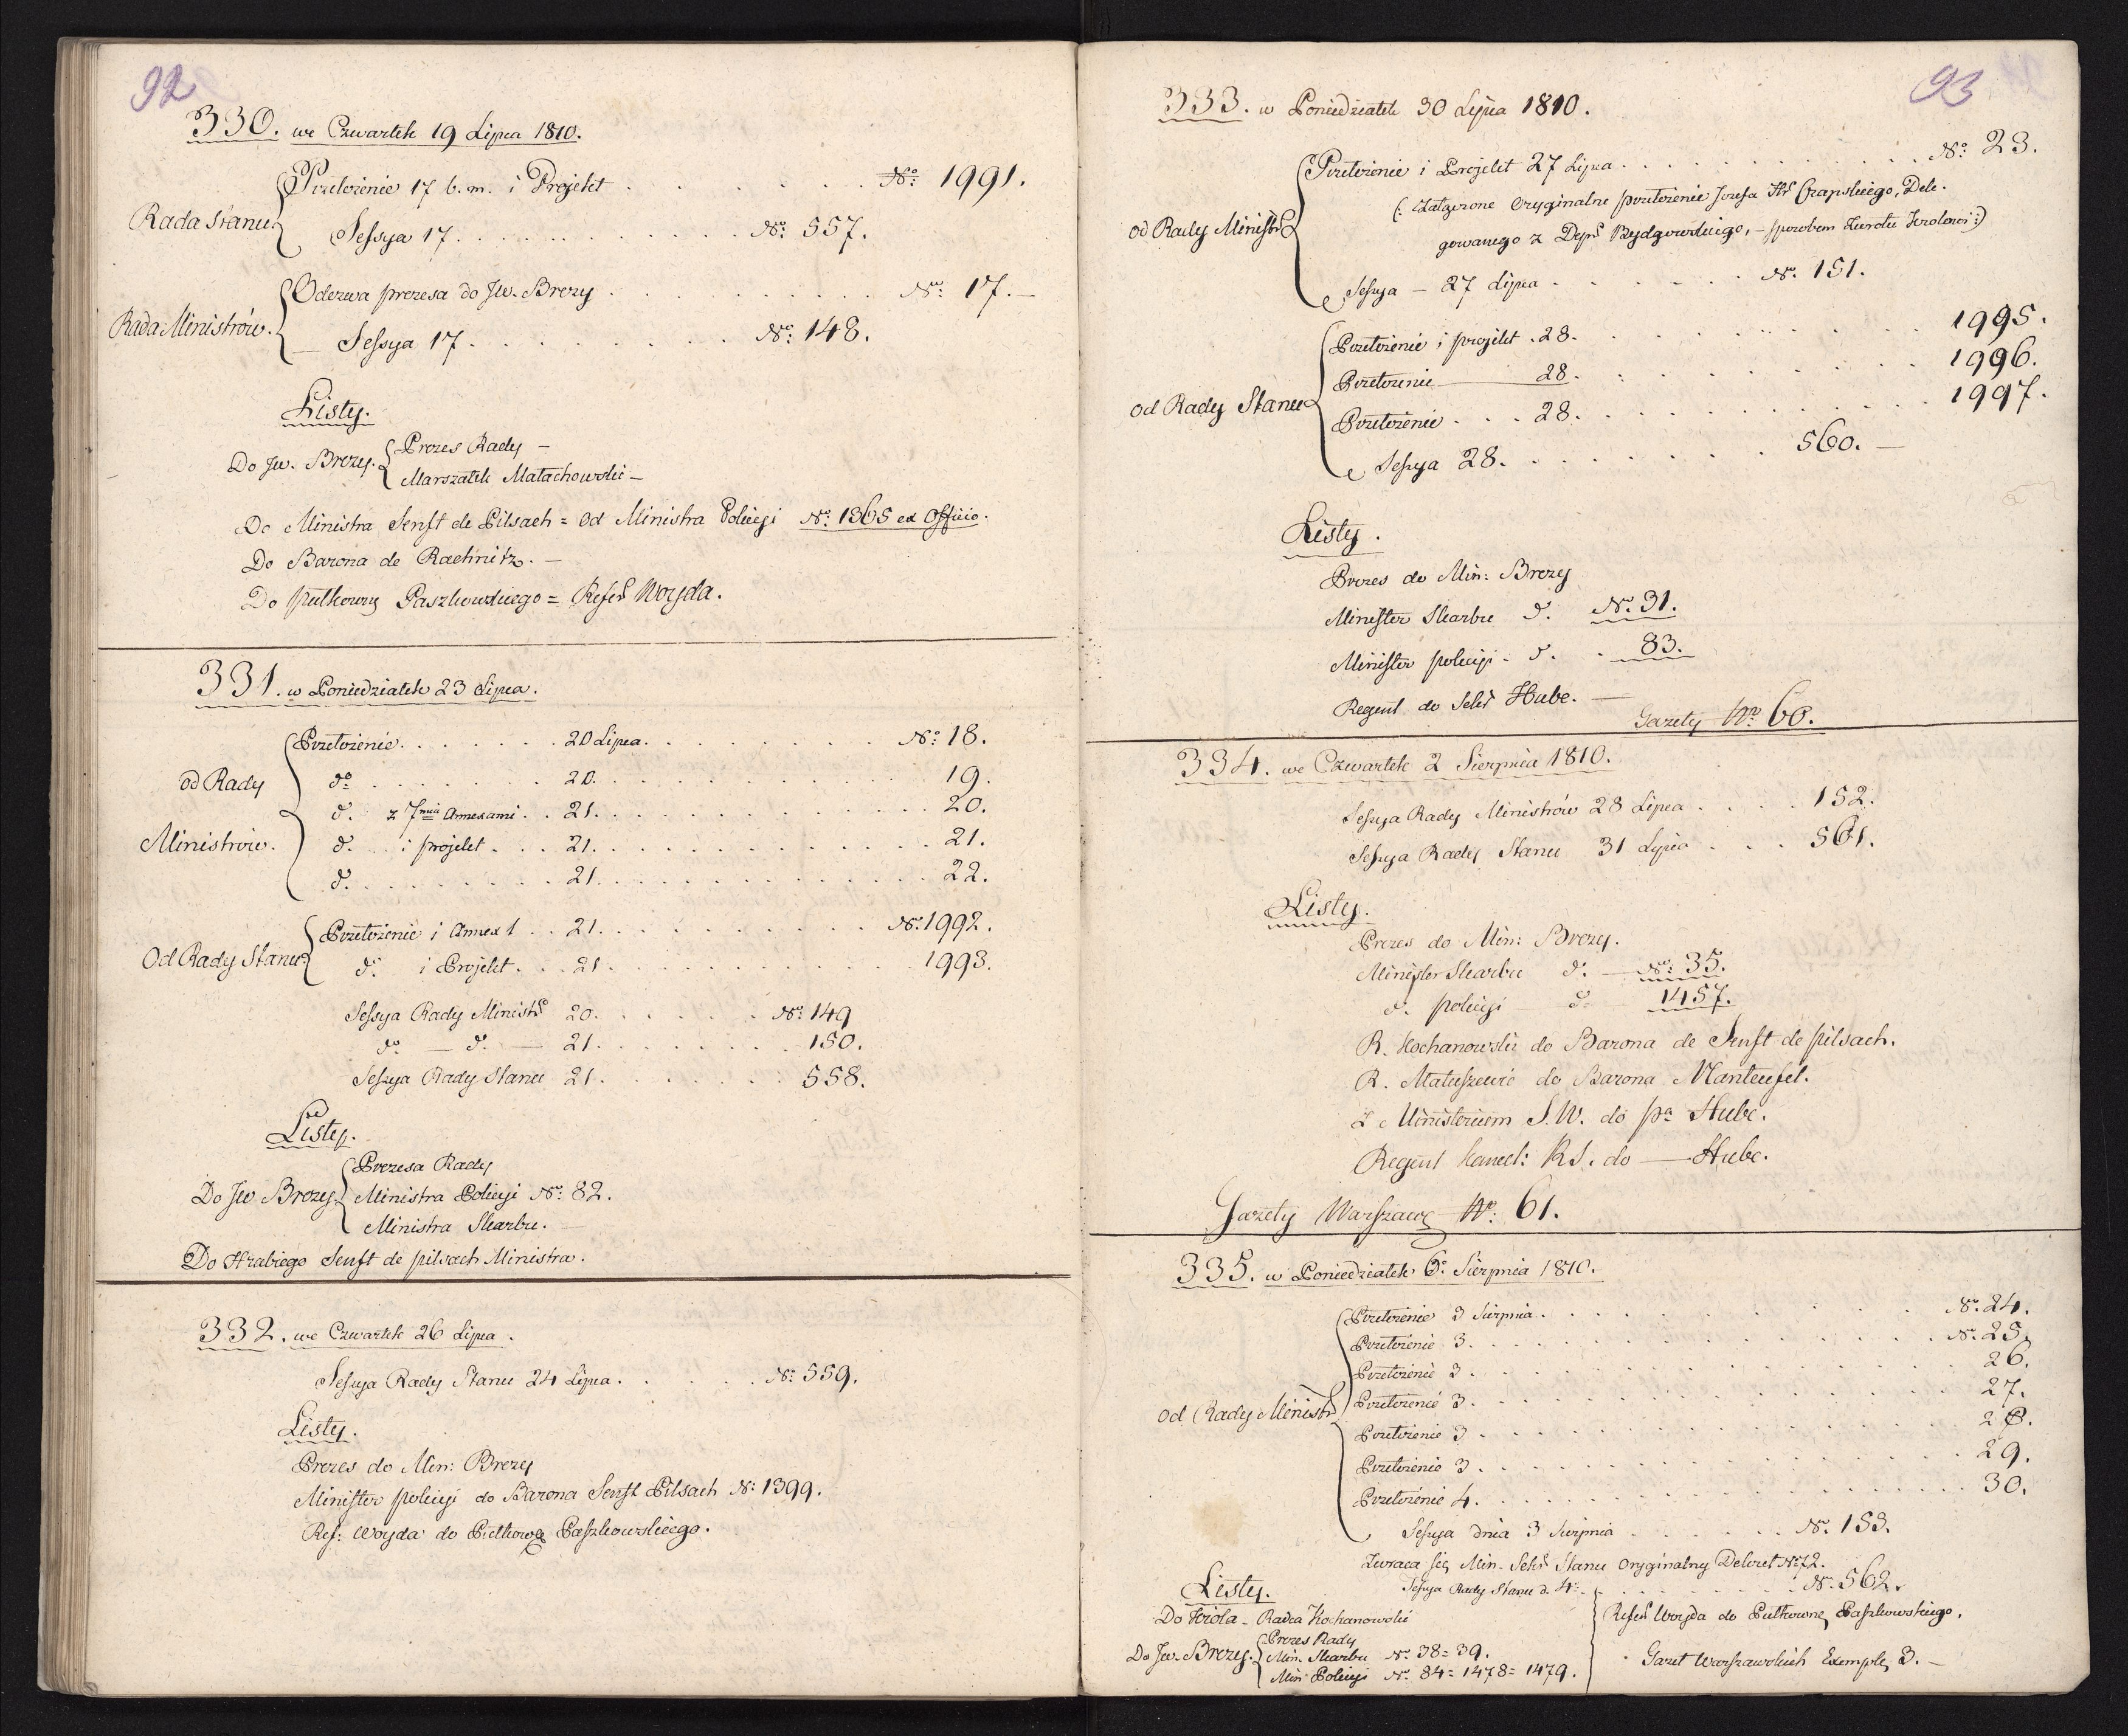 92
330. we Czwartek 19 Lipca 1810.
Przełożenie 17 b. m. i Projekt . . . . . . . No: 1991.
Rada Stanu
Sessya 17. . . . . . . . . . . No: 557.
Odezwa prezesa do Jw. Brezy . . . . . . . . No: 17. —
Rada Ministrów.
— Sessya 17. . . . . . . . . . No: 148.
Listy.
Do Jw. Brezy.
Prezes Rady —
Marszałek Małachowski —
Do Ministra Senft de Pilsach = od Ministra Policyi No: 1365 ex Officio.
Do Barona de Racknitz. —
Do Pułkowny Paszkowskiego = Referz Woyda.
331. w Poniedziałek 23 Lipca.
Przełożenie. . . . . . . 20 Lipca. . . . . . . . . No: 18.
od Rady
do . . . . . . . 20. . . . . . . . . . . 19.
d. z 7mią Annexami . . 21. . . . . . . . . . . . 20.
Ministrów.
d. . . i projekt . . . 21. . . . . . . . . . . . 21.
d. . . . . . . . . 21. . . . . . . . . . . . 22.
Przełożenie i Annex 1 . . 21. . . . . . . . . . No: 1992.
Od Rady Stanu
d: i Projekt. . . 21 . . . . . . . . . . . 1993.
Sessya Rady Ministr 20. . . . . . . No: 149
do — d. — 21. . . . . . . . 150.
Sessya Rady Stanu 21. . . . . . . . 558.
Listy.
Do Jw Brezy.
Prezesa Rady
Ministra Policyi No: 82.
Ministra Skarbu. —
Do Hrabiego Senft de pilsach Ministra.
332. we Czwartek 26 Lipca.
Sessya Rady Stanu 24 Lipca. . . . . . No: 559.
Listy.
Prezes do Min: Brezy
Minister policyi do Barona Senft Pilsach N: 1399.
Ref: Woyda do Pułkowę Paszkowskiego.
93
333. w Poniedziałek 30 Lipca 1810.
Przełożenie i Projekt 27 Lipca. . . . . . . . . . . . . No: 23.
(: załączone Oryginalne przełożenie Jozefa Hr Czapskiego, Dele.
od Rady Ministr
gowanego z Depu Bydgowskiego, — sposobem Zwrotu Królowi :)
Sessya — 27 Lipca . . . . . . . No. 151.
Przełożenie i projekt . 28. . . . . . . . . . . 1995.
Przełożenie — 28. . . . . . . . . . . 1996.
od Rady Stanu
Przełożenie . . . 28. . . . . . . . . . . 1997.
Sessya 28. . . . . . . . . 560. —
Listy.
Prezes do Min: Brezy
Minister Skarbu d. No. 31.
Minister policyi. d. . 83.
Regent do Sekr Hube. —
Gazety No 60.
334. we Czwartek 2 Sierpnia 1810.
Sessya Rady Ministrów 28 Lipca . . . . 152.
Sessya Rady Stanu 31 Lipca . . . . 561.
Listy.
Prezes do Min: Brezy.
Minister Skarbu d. — No: 35.
d. policyi — d. — 1457.
R. Kochanowski do Barona de Senft de pilsach.
R. Matuszewic do Barona Manteufel.
Z Ministerium S.W. do pa Hube.
Regent Kancel: R.S. do — Hube.
Gazety Warszawę No: 61.
335. w Poniedziałek 6o Sierpnia 1810.
Przełożenie 3 Sierpnia. . . . . . . . . . . No. 24.
Przełożenie 3. . . . . . . . . . . . . No. 25.
Przełożenie 3. . . . . . . . . . . . . 26.
Od Rady Ministr
Przełożenie 3. . . . . . . . . . . . . 27.
Przełożenie 3. . . . . . . . . . . . . 28.
Przełożenie 3. . . . . . . . . . . . . 29.
Przełożenie 4. . . . . . . . . . . . . 30.
Sessya dnia 3 Sierpnia . . . . . . No. 153.
Zwraca się Min. Sekr Stanu Oryginalny Dekret No 72.
Listy.
Sessya Rady Stanu d. 4. . . . . . . . . No. 562.
Do Króla — Radca Kochanowski
Do Jw. Brezy.
Prezes Rady
Min. Skarbu No 38 = 39.
Min Policyi No. 84 = 1478 = 1479.
Referz Woyda do Pułkownę Paszkowskiego.
Gazet Warszawskich Exempl. 3. —